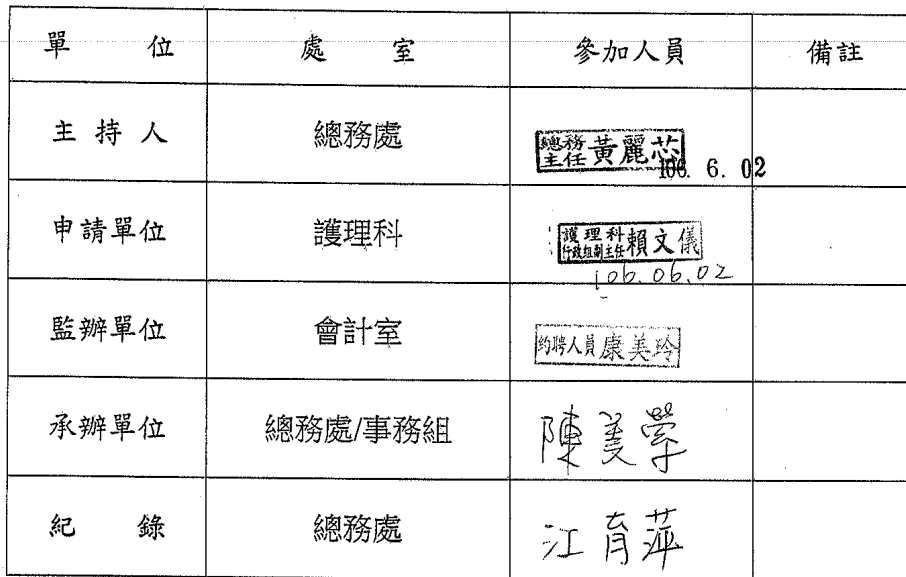 單 位 處 室 參加人員 備註
主持人 總務處 總務主任 黃麗芯 106. 6. 02
申請單位 護理科 護理科行政組副主任 賴文儀
106.06.02
監辦單位 會計室 約聘人員 康美玲
承辦單位 總務處/事務組 陳美
紀 錄 總務處 江育萍